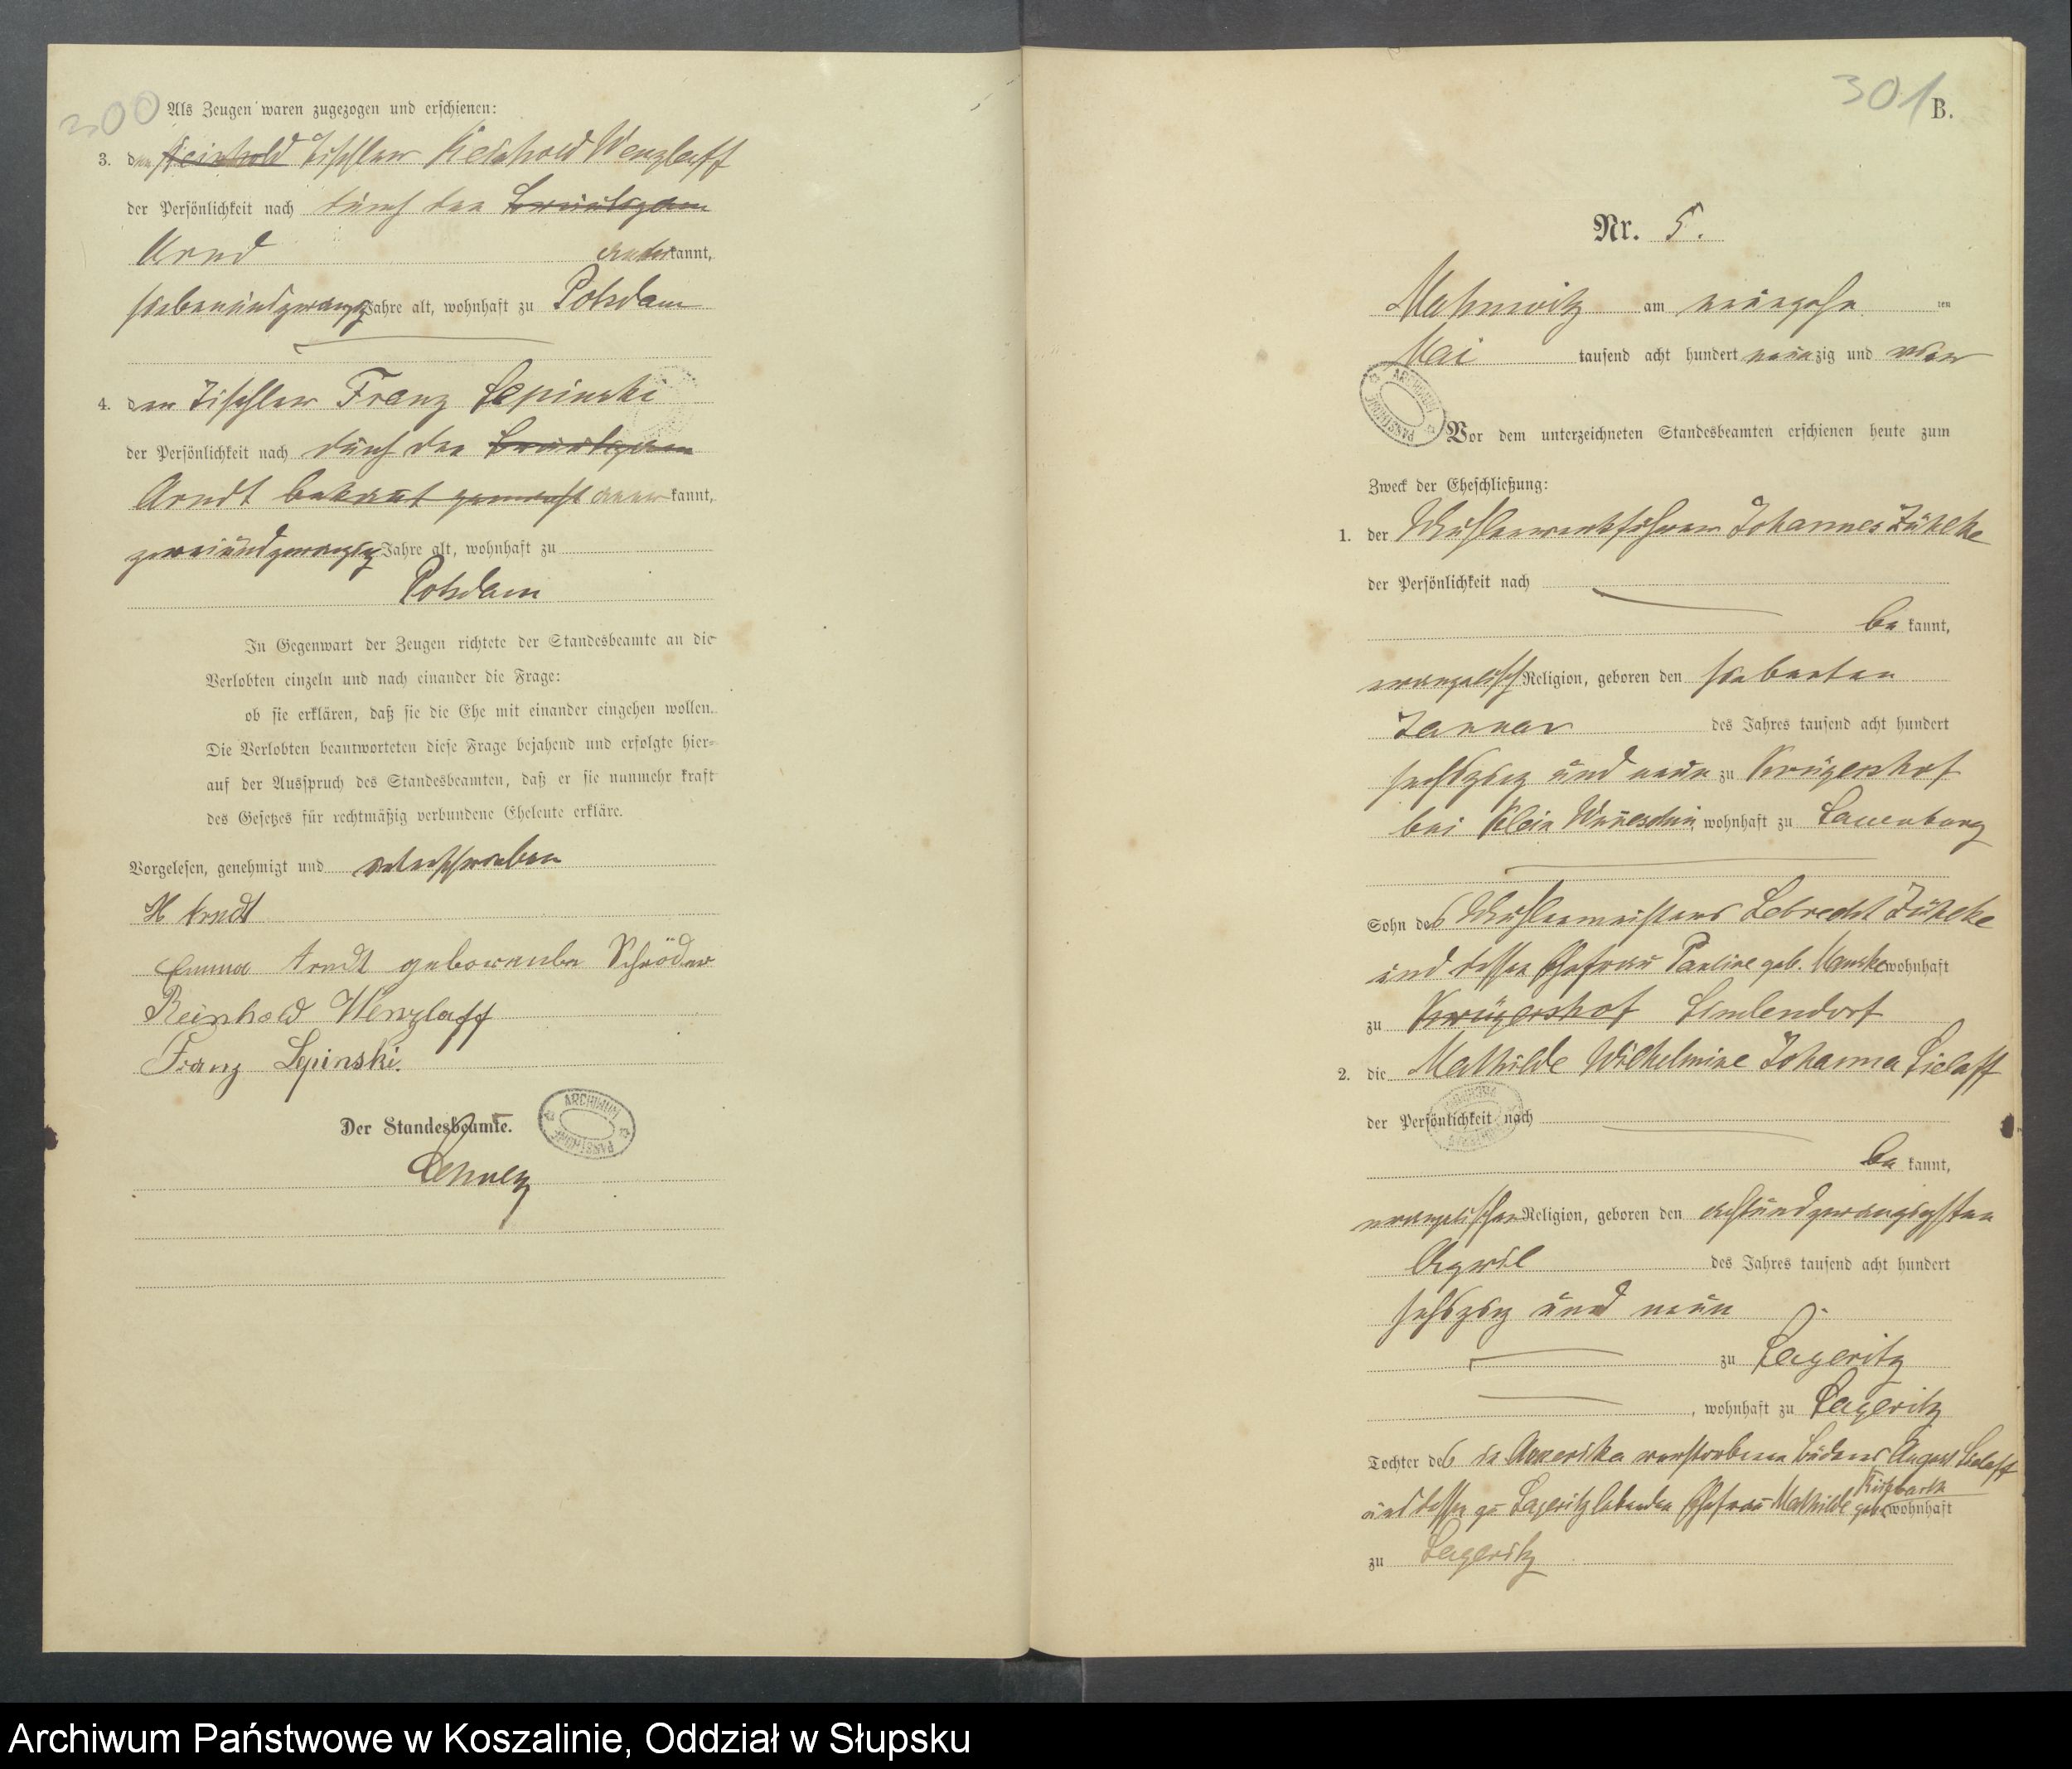 300
Als Zeugen waren zugezogen und erschienen:
3. den Reinhold Tischler Reinhold Wenzlaff
der Persönlichkeit nach durch den Bräutigam
Arnd anerkannt,
siebenundzwanzig Jahre alt, wohnhaft zu Potsdam
4. den Tischler Franz Lepinski
der Persönlichkeit nach durch den Bräutigam
Arndt bekannt gemacht anerkannt,
zweiundzwanzig Jahre alt, wohnhaft zu
Potsdam
In Gegenwart der Zeugen richtete der Standesbeamte an die
Verlobten einzeln und nach einander die Frage:
ob sie erklären, daß sie die Ehe mit einander eingehen wollen.
Die Verlobten beantworteten diese Frage bejahend und erfolgte hier-
auf der Ausspruch des Standesbeamten, daß er sie nunmehr kraft
des Gesetzes für rechtmäßig verbundene Eheleute erkläre.
Vorgelesen, genehmigt und unterschrieben
H Arndt
Emma Arndt geborene Schröder
Reinhold Wenzlaff
Franz Lepinski.
Der Standesbeamte.
ARCHIWUM PAŃSTWOWE
301
B.
Nr. 5.
Mahnwitz am neunzehnten
Mai tausend acht hundert neunzig und vier
ARCHIWUM PAŃSTWOWE
Vor dem unterzeichneten Standesbeamten erschienen heute zum
Zweck der Eheschließung:
1. der Mühlenwerkführer Johannes Zühlke
der Persönlichkeit nach
be kannt,
evangelisch Religion, geboren den siebenten
Januar des Jahres tausend acht hundert
sechszig und neun zu Krügershof
bei Klein wohnhaft zu Lauenburg
Sohn des Mühlenmeisters Lebrecht Zühlke
und dessen Ehefrau Pauline geb. Manske wohnhaft
zu Krügershof Simlendorf
2. die Mathilde Wilhelmine Johanna Sielaff
der Persönlichkeit nach
be kannt,
evangelischen Religion, geboren den achtundzwanzigsten
April des Jahres tausend acht hundert
sechszig und neun
zu Zezeritz
, wohnhaft zu Zezeritz
Tochter des in Amerika verstorbenen Büdners August Sielaff
und dessen zu Zezeritz lebenden Ehefrau Mathilde geb. wohnhaft
zu Zezeritz
Archiwum Państwowe w Koszalinie, Oddział w Słupsku